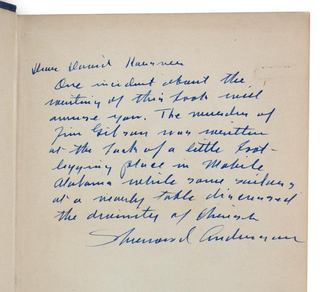 Dear David Karsner
One incident about the
writing of this book will
amuse you. The murder of
Jim Gibson was written
at the back of a little boot-
legging place in Mobile
Alabama while some sailors
at a nearby table discussed
the divinity of Christ
Sherwood Anderson